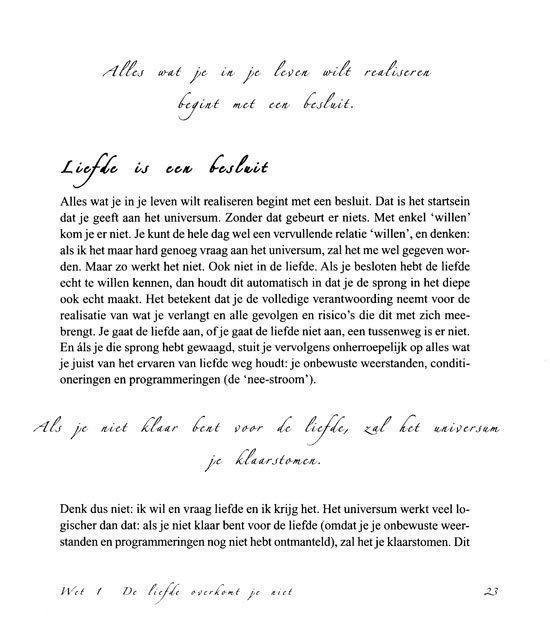 Alles wat je in je leven wilt realiseren
begint met een besluit.
Liefde is een besluit
Alles wat je in je leven wilt realiseren begint met een besluit. Dat is het startsein
dat je geeft aan het universum. Zonder dat gebeurt er niets. Met enkel ‘willen’
kom je er niet. Je kunt de hele dag wel een vervullende relatie ‘willen’, en denken:
als ik het maar hard genoeg vraag aan het universum, zal het me wel gegeven wor-
den. Maar zo werkt het niet. Ook niet in de liefde. Als je besloten hebt de liefde
echt te willen kennen, dan houdt dit automatisch in dat je de sprong in het diepe
ook echt maakt. Het betekent dat je de volledige verantwoording neemt voor de
realisatie van wat je verlangt en alle gevolgen en risico’s die dit met zich mee-
brengt. Je gaat de liefde aan, of je gaat de liefde niet aan, een tussenweg is er niet.
En áls je die sprong hebt gewaagd, stuit je vervolgens onherroepelijk op alles wat
je juist van het ervaren van liefde weg houdt: je onbewuste weerstanden, conditi-
oneringen en programmeringen (de ‘nee-stroom’).
Als je niet klaar bent voor de liefde, zal het universum
je klaarstomen.
Denk dus niet: ik wil en vraag liefde en ik krijg het. Het universum werkt veel lo-
gischer dan dat: als je niet klaar bent voor de liefde (omdat je je onbewuste weer-
standen en programmeringen nog niet hebt ontmanteld), zal het je klaarstomen. Dit
Wet 1 De liefde overkomt je niet 23